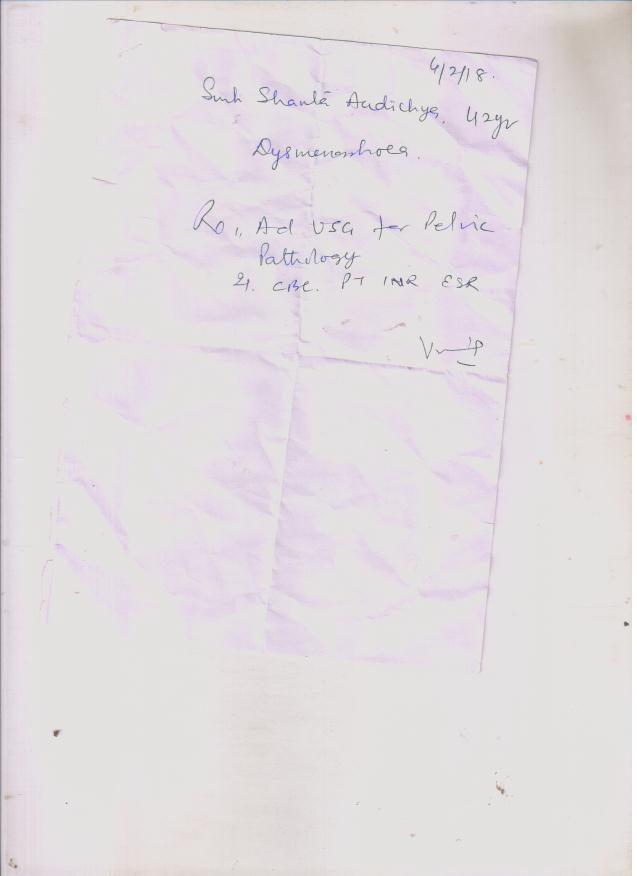 4/2/18.
Smt Shanta Audichya. 42yr
Dysmenorrhoea.
Ro 1, Ad USG for Pelvic
Pathology
2. CBC. PT INR ESR